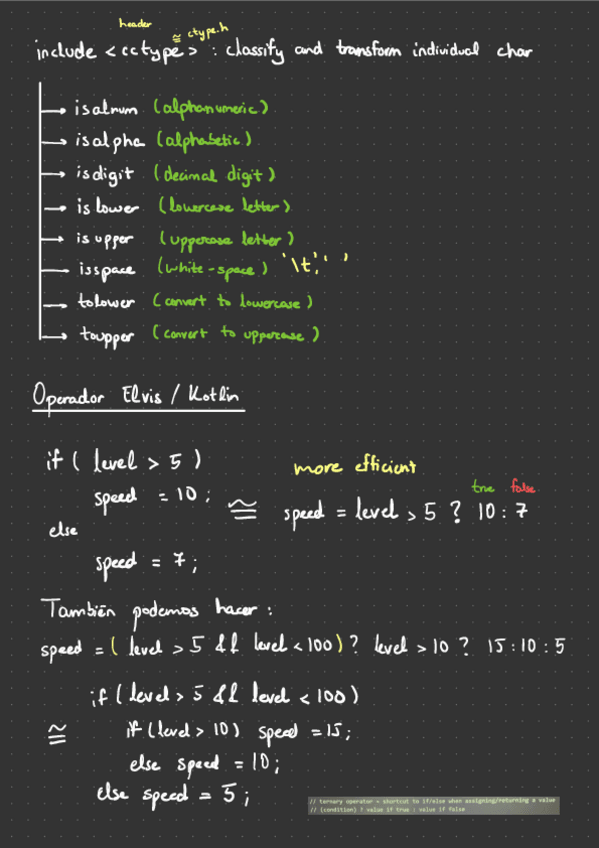 header
≅ ctype.h
include <cctype> : classify and transform individual char
→ isalnum (alphanumeric)
→ isalpha (alphabetic)
→ isdigit (decimal digit)
→ islower (lowercase letter)
→ isupper (uppercase letter)
→ isspace (white-space) '\t',' '
→ tolower (convert to lowercase)
→ toupper (convert to uppercase)
Operador Elvis / Kotlin
if ( level > 5 )
speed = 10 ;
else
speed = 7 ;
more efficient
true false
≅ speed = level > 5 ? 10 : 7
También podemos hacer :
speed = ( level > 5 && level < 100 ) ? level > 10 ? 15 : 10 : 5
if ( level > 5 && level < 100 )
≅ if ( level > 10 ) speed = 15 ;
else speed = 10 ;
else speed = 5 ;
// ternary operator = shortcut to if/else when assigning/returning a value
// (condition) ? value if true : value if false